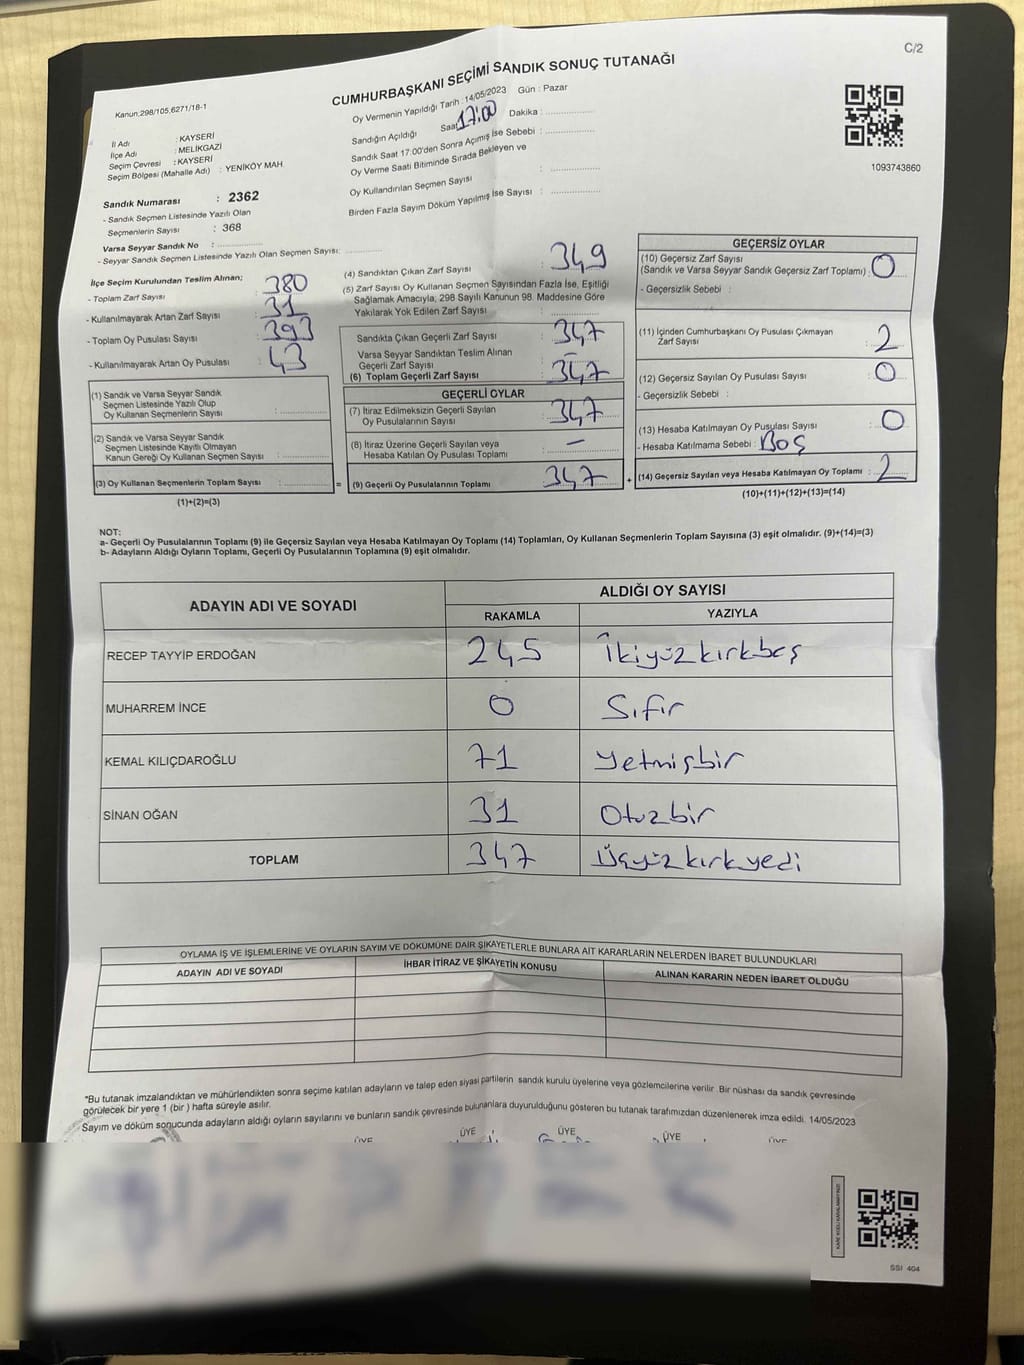 C/2
CUMHURBAŞKANI SEÇİMİ SANDIK SONUÇ TUTANAĞI
Kanun:298/105,6271/18-1
Oy Vermenin Yapıldığı Tarih : 14/05/2023 Gün : Pazar
Sandığın Açıldığı Saat 17:00 Dakika :
Sandık Saat 17:00'den Sonra Açımış İse Sebebi :
Oy Verme Saati Bitiminde Sırada Bekleyen ve
Oy Kullandırılan Seçmen Sayısı :
Birden Fazla Sayım Döküm Yapılmış İse Sayısı :
1093743860
İl Adı : KAYSERİ
İlçe Adı : MELİKGAZİ
Seçim Çevresi : KAYSERİ
Seçim Bölgesi (Mahalle Adı) : YENİKÖY MAH
Sandık Numarası : 2362
- Sandık Seçmen Listesinde Yazılı Olan
Seçmenlerin Sayısı : 368
Varsa Seyyar Sandık No :
- Seyyar Sandık Seçmen Listesinde Yazılı Olan Seçmen Sayısı:
İlçe Seçim Kurulundan Teslim Alınan;
- Toplam Zarf Sayısı : 380
- Kullanılmayarak Artan Zarf Sayısı : 31
- Toplam Oy Pusulası Sayısı : 393
- Kullanılmayarak Artan Oy Pusulası : 43
(1) Sandık ve Varsa Seyyar Sandık
Seçmen Listesinde Yazılı Olup
Oy Kullanan Seçmenlerin Sayısı :
(2) Sandık ve Varsa Seyyar Sandık
Seçmen Listesinde Kayıtlı Olmayan
Kanun Gereği Oy Kullanan Seçmen Sayısı :
(3) Oy Kullanan Seçmenlerin Toplam Sayısı :
(1)+(2)=(3)
(4) Sandıktan Çıkan Zarf Sayısı : 349
(5) Zarf Sayısı Oy Kullanan Seçmen Sayısından Fazla İse, Eşitliği
Sağlamak Amacıyla, 298 Sayılı Kanunun 98. Maddesine Göre
Yakılarak Yok Edilen Zarf Sayısı :
Sandıkta Çıkan Geçerli Zarf Sayısı : 347
Varsa Seyyar Sandıktan Teslim Alınan
Geçerli Zarf Sayısı : –
(6) Toplam Geçerli Zarf Sayısı : 347
GEÇERLİ OYLAR
(7) İtiraz Edilmeksizin Geçerli Sayılan
Oy Pusulalarının Sayısı : 347
(8) İtiraz Üzerine Geçerli Sayılan veya
Hesaba Katılan Oy Pusulası Toplamı : –
= (9) Geçerli Oy Pusulalarının Toplamı : 347
GEÇERSİZ OYLAR
(10) Geçersiz Zarf Sayısı
(Sandık ve Varsa Seyyar Sandık Geçersiz Zarf Toplamı) : 0
- Geçersizlik Sebebi :
(11) İçinden Cumhurbaşkanı Oy Pusulası Çıkmayan
Zarf Sayısı : 2
(12) Geçersiz Sayılan Oy Pusulası Sayısı : 0
- Geçersizlik Sebebi :
(13) Hesaba Katılmayan Oy Pusulası Sayısı : 0
- Hesaba Katılmama Sebebi : Boş
+ (14) Geçersiz Sayılan veya Hesaba Katılmayan Oy Toplamı : 2
(10)+(11)+(12)+(13)=(14)
NOT:
a- Geçerli Oy Pusulalarının Toplamı (9) ile Geçersiz Sayılan veya Hesaba Katılmayan Oy Toplamı (14) Toplamları, Oy Kullanan Seçmenlerin Toplam Sayısına (3) eşit olmalıdır. (9)+(14)=(3)
b- Adayların Aldığı Oyların Toplamı, Geçerli Oy Pusulalarının Toplamına (9) eşit olmalıdır.
ADAYIN ADI VE SOYADI ALDIĞI OY SAYISI
RAKAMLA YAZIYLA
RECEP TAYYİP ERDOĞAN 245 İkiyüzkırkbeş
MUHARREM İNCE 0 Sıfır
KEMAL KILIÇDAROĞLU 71 Yetmişbir
SİNAN OĞAN 31 Otuzbir
TOPLAM 347 Üçyüzkırkyedi
OYLAMA İŞ VE İŞLEMLERİNE VE OYLARIN SAYIM VE DÖKÜMÜNE DAİR ŞİKAYETLERLE BUNLARA AİT KARARLARIN NELERDEN İBARET BULUNDUKLARI
ADAYIN ADI VE SOYADI İHBAR İTİRAZ VE ŞİKAYETİN KONUSU ALINAN KARARIN NEDEN İBARET OLDUĞU
*Bu tutanak imzalandıktan ve mühürlendikten sonra seçime katılan adayların ve talep eden siyasi partilerin sandık kurulu üyelerine veya gözlemcilerine verilir .Bir nüshası da sandık çevresinde
görülecek bir yere 1 (bir ) hafta süreyle asılır.
Sayım ve döküm sonucunda adayların aldığı oyların sayılarını ve bunların sandık çevresinde bulunanlara duyurulduğunu gösteren bu tutanak tarafımızdan düzenlenerek imza edildi. 14/05/2023
ÜYE ÜYE ÜYE ÜYE ÜYE
SSI 404